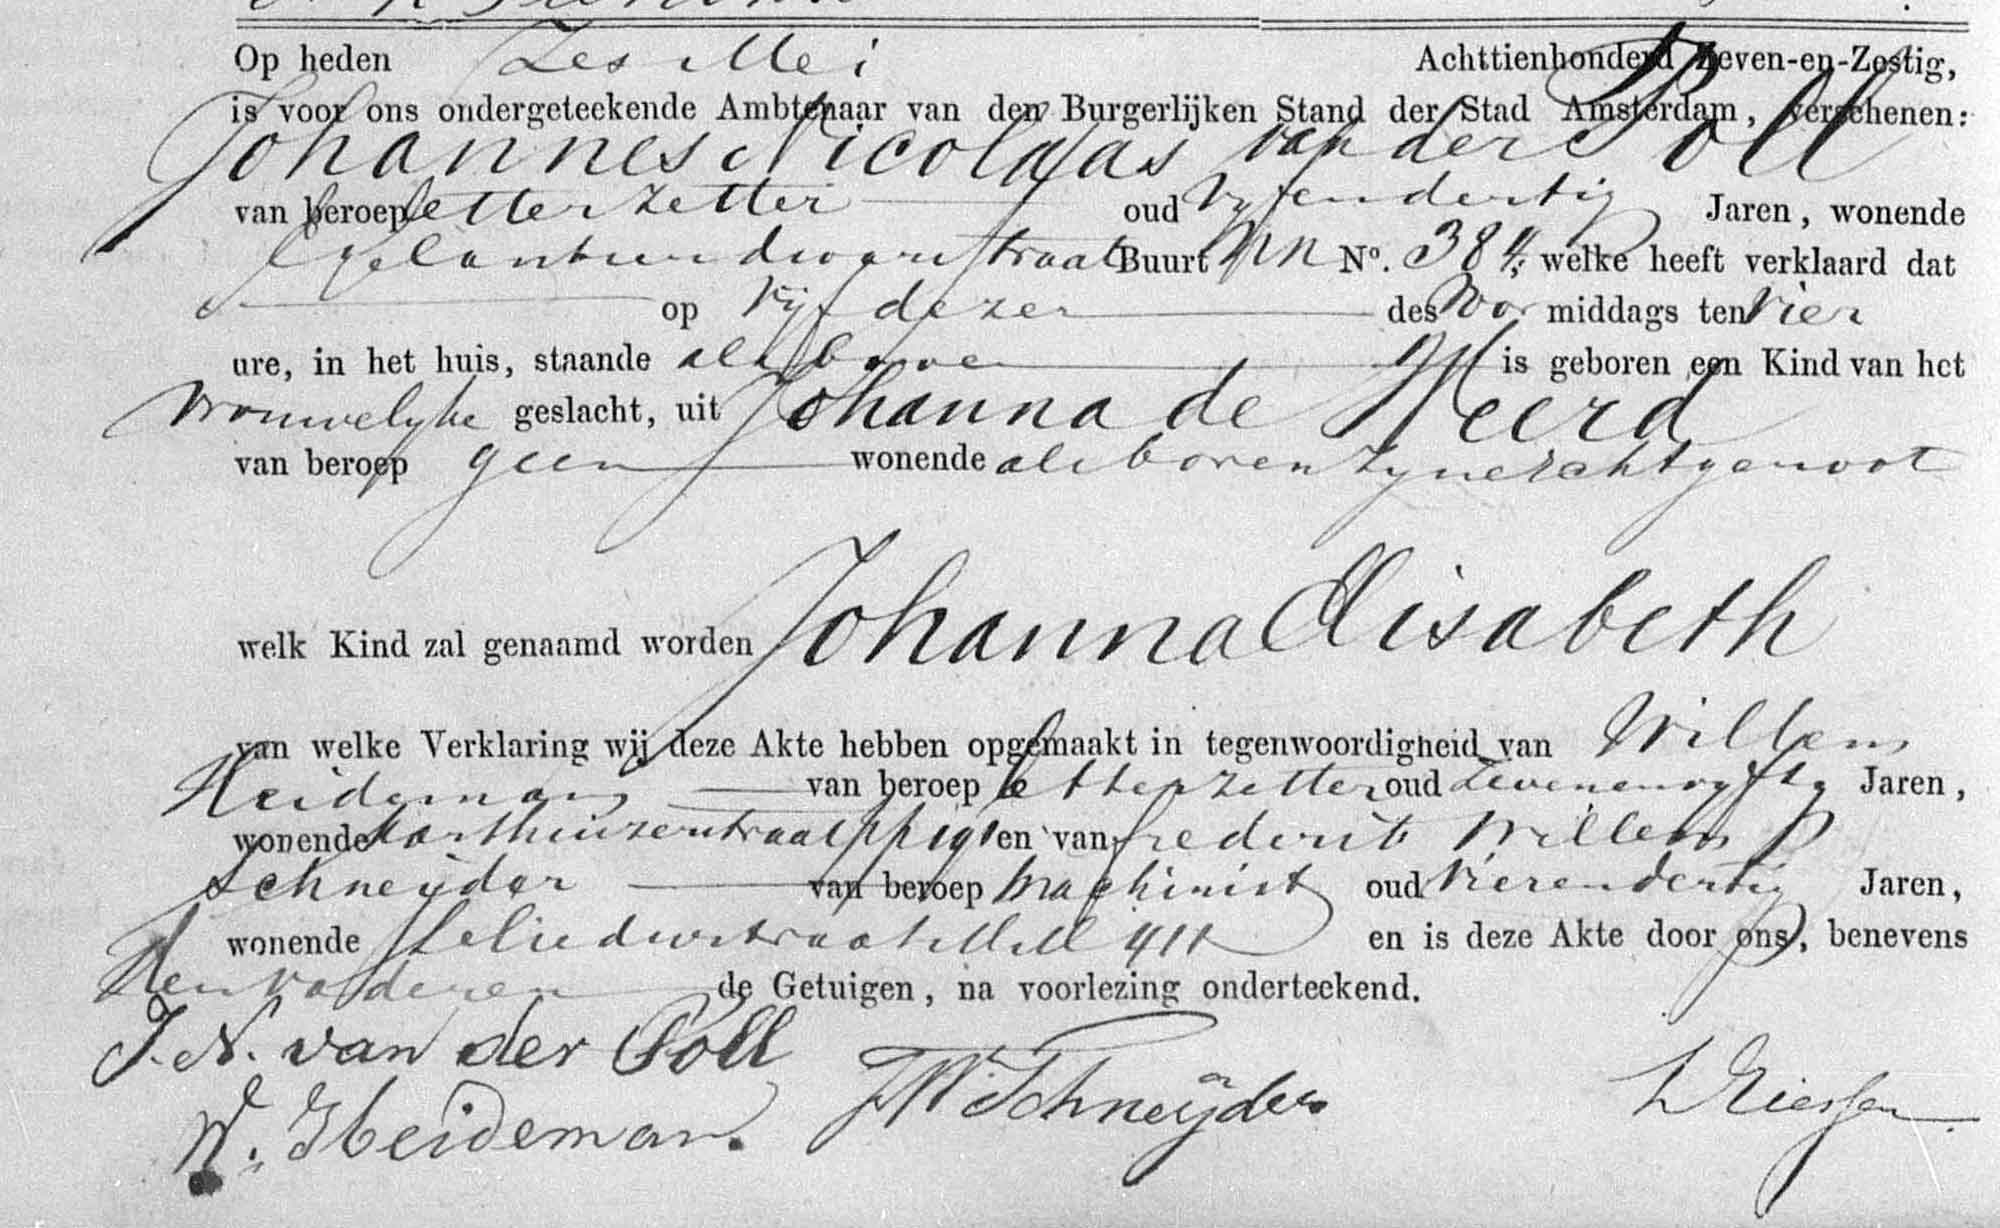 Op heden Zes Mei Achttienhonderd Zeven-en-Zestig,
is voor ons ondergeteekende Ambtenaar van den Burgerlijken Stand der Stad Amsterdam, verschenen:
Johannes Nicolaas van der Poll
van beroep letterzetter oud vijfendertig Jaren, wonende
Egelantiersdwarsstraat Buurt NN No. 384; welke heeft verklaard dat
op vijf dezer des voor middags ten vier
ure, in het huis, staande als boven is geboren een Kind van het
vrouwelyke geslacht, uit Johanna de Weerd
van beroep geen wonende als boven zyne echtgenoot
welk Kind zal genaamd worden Johanna Elisabeth
van welke Verklaring wij deze Akte hebben opgemaakt in tegenwoordigheid van Willem
Heideman van beroep letterzetter oud zevenenvyftig Jaren,
wonende Karthuizerstraat en van Frederik Willem
Schneijder van beroep machinist oud vierendertig Jaren,
wonende Leliedwstraat MM 411 en is deze Akte door ons, benevens
den vader en de Getuigen, na voorlezing onderteekend.
J. N. van der Poll
FW Schneijder
W. Heideman.